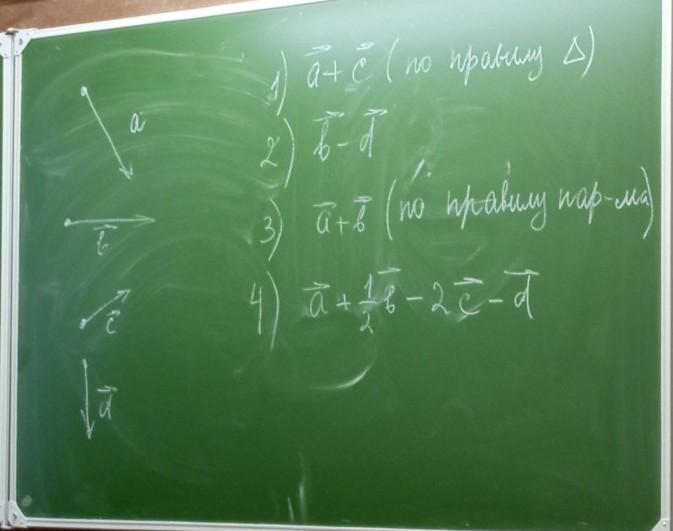 a
b⃗
c⃗
d⃗
1) a⃗ + c⃗ (по правилу Δ)
2) b⃗ - d⃗
3) a⃗ + b⃗ (по правилу пар-ма)
4) a⃗ + 1/2 b⃗ - 2c⃗ - d⃗